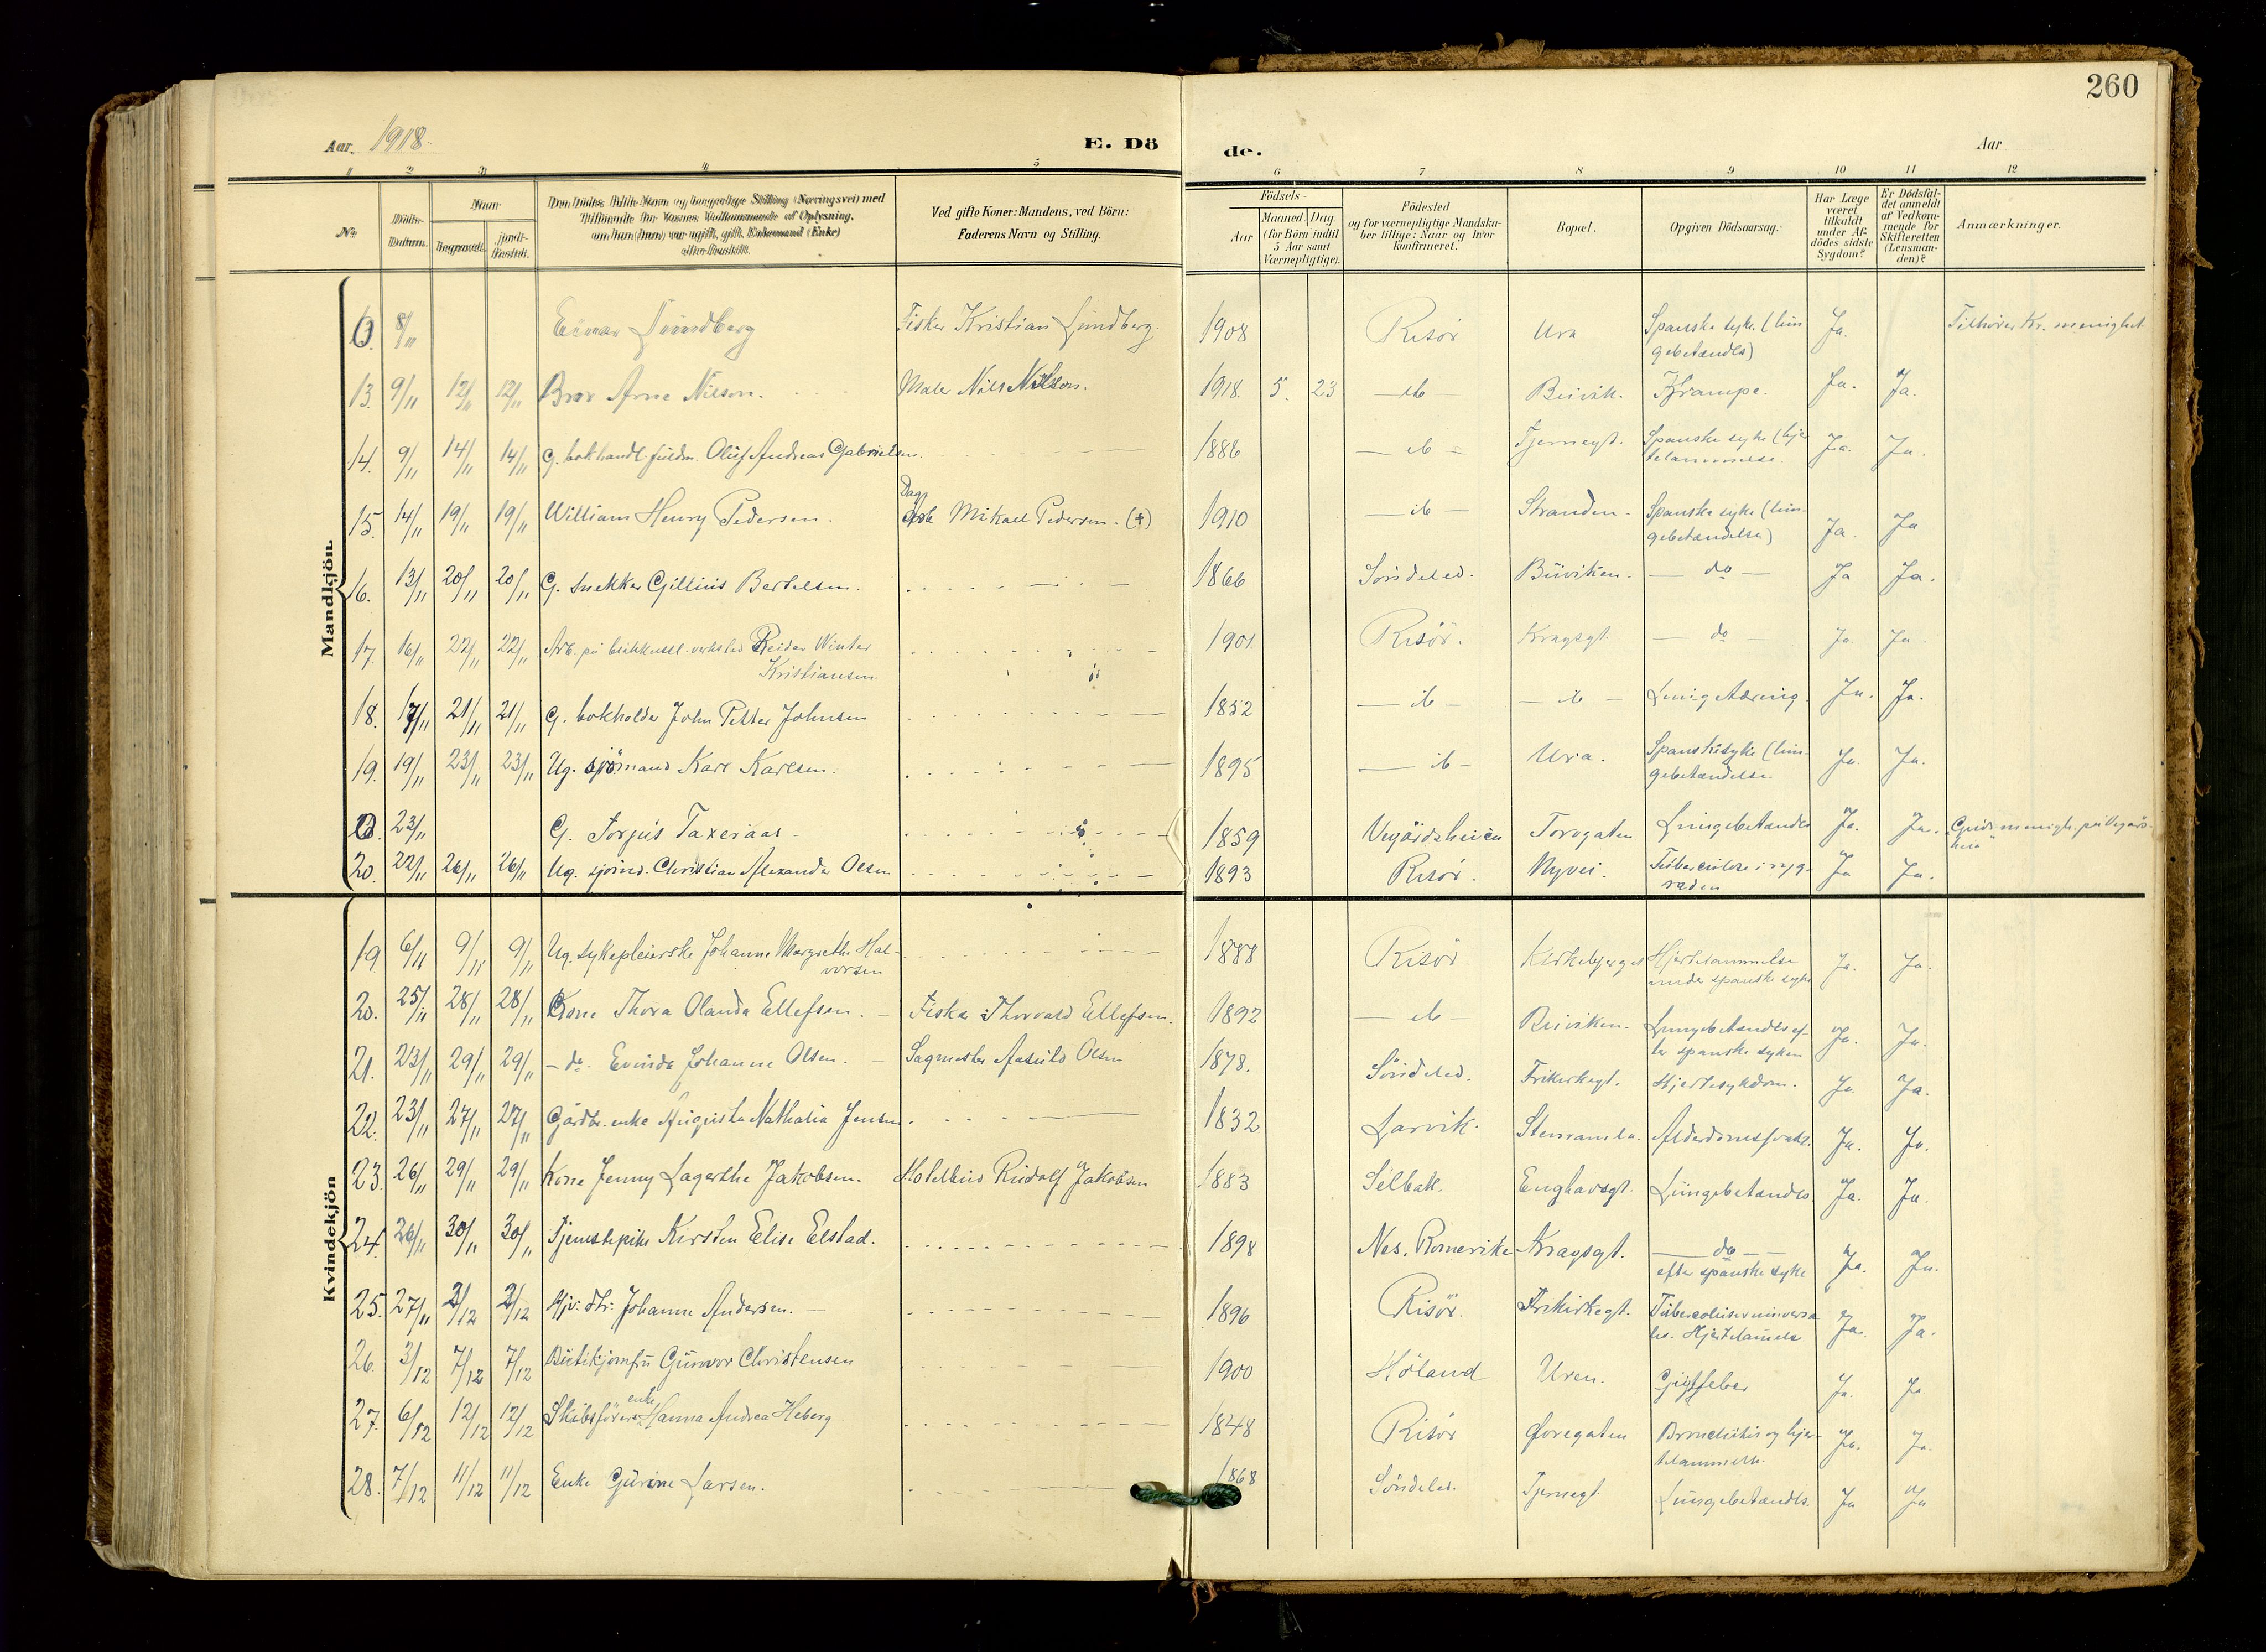 260
Aar 1918.
E. Dö
de.
Aar
1 2 3 4 5 6 7 8 9 10 11 12
No.
Döds-Datum.
Naar
begravet.
jordfæstet.
Den Dödes fulde Navn og borgerlige Stilling (Næringsvei) med
om han (hun) var ugift, gift, Enkemand (Enke)
eller fraskilt.
Ved gifte Koner: Mandens, ved Börn:
Faderens Navn og Stilling.
Födsels-
Aar
Maaned. Dag
(for Börn indtil
5 Aar samt
Værnepligtige).
Födested
og for værnepligtige Mandska-
ber tillige: Naar og hvor
konfirmeret.
Bopæl.
Opgiven Dödsaarsag.
Har Læge
været
tilkaldt
under Af-
dödes sidste
Sygdom?
Er Dödsfal-
det anmeldt
af Vedkom-
mende for
Skifteretten
(Lensman-
den)?
Anmærkninger.
Mandkjön.
0. 8/11 Einar Lundberg Fisker Kristian Lundberg. 1908 Risör Ura Spanske syke (lun-
gebetændls) Ja. Tilhörer Kr. menighet
13. 9/11 12/11 12/11 Bror Arne Nilson. Maler Nils Nilson. 1918. 5. 23 — ib — Buvik. Krampe. Ja. Ja.
14. 9/11 14/11 14/11 G. bokhandl. fuldm. Oluf Andreas Gabrielsen. 1886 — ib — Tjernegt. Spanske syke (hjer-
telammelse. Ja. Ja.
15. 14/11 19/11 19/11 William Henry Pedersen. Dag-
arb. Mikael Pedersen. (†) 1910 — ib — Stranden. Spanske syke (lun-
gebetændelse) Ja. Ja
16. 13/11 20/11 20/11 G. snekker Gillius Bertelsen. 1866 Söndeled. Buviken. — do — Ja Ja.
17. 16/11 22/11 22/11 Arb. på verksted Reidar Winter
Kristiansen. 1901 Risör. Kragsgt. — do — Ja. Ja.
18. 17/11 21/11 21/11 G. bokholder John Petter Johnsen 1852 — ib — — ib — Lungetæring. Ja. Ja.
19. 19/11 23/11 23/11 Ug. sjömand Karl Karlsen. 1895 — ib — Ura. Spanskesyke (lun-
gebetændelse. Ja. Ja.
0. 23/11 G. Torjus Taxeraas 1859 Vegårdsheien Torvgaten Lungebetændls Ja. Ja. "Guds menigh. på Vegårds-
hei"
20. 22/11 26/11 26/11 Ug. sjömd. Christian Alexander Olsen 1893 Risör. Nyvei. Tuberculose i ryg-
raden Ja Ja.
Kvindekjön
19. 6/11 9/11 9/11 Ug. sykepleierske Johanne Margrethe Hal-
vorsen 1888 Risör Kirkebjerget Hjertelammelse
under spanske syke Ja. Ja.
20. 25/11 28/11 28/11 Kone Thora Olanda Ellefsen. Fisker Thorvald Ellefsen. 1892 — ib — Buviken. Lungebetændls ef-
ter spanske syken Ja. Ja.
21. 23/11 29/11 29/11 — do. Evinda Johanne Olsen. Sagmester Olsen 1878. Söndeled. Frikirkegt. Hjertesykdom. Ja Ja.
22. 23/11 27/11 27/11 Gårdbr. enke Augusta Nathalia Jensen. 1832 Larvik. Alderdomssvakh. Ja. Ja.
23. 26/11 29/11 29/11 Kone Jenny Lagertha Jakobsen. Rudolf Jakobsen 1883 Selbak. Enghavsgt. Lungebetændls Ja. Ja.
24. 26/11 30/11 30/11 Tjenestepike Kirsten Elise Elstad. 1898 Nes. Romerike Kragsgt. — do —
efter spanske syke Ja. Ja.
25. 27/11 2/12 2/12 Hjv. dtr. Johanne Andersen. 1896 Risör. Frikirkegt. Tuberculose universa-
les. Hjertelamels. Ja. Ja.
26. 3/12 7/12 7/12 Butikjomfru Gunvor Christensen 1900 Höland Uren. Gigtfeber Ja. Ja
27. 6/12 12/12 12/12 Skibsförer enke Hanna Andrea Heberg 1848 Risör Övregaten Bronchitis og hjer-
telammelse. Ja. Ja.
28. 7/12 11/12 11/12 Enke Gurine Larsen. 1868 Söndeled. Tjernegt. Lungebetændls. Ja Ja